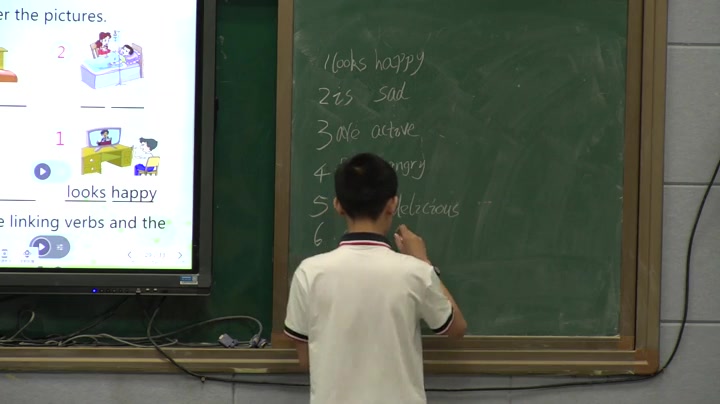 er the pictures.
2
1
looks happy
e linking verbs and the
1 looks happy
2 is sad
3 are active
4 angry
5 delicious
6